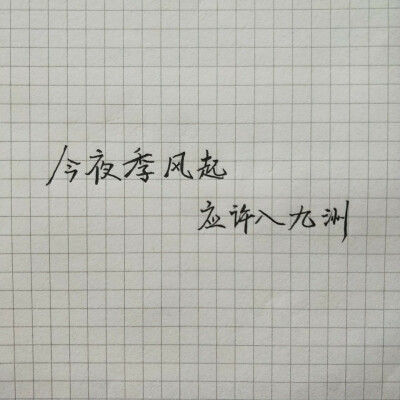 今夜季风起
应许入九洲